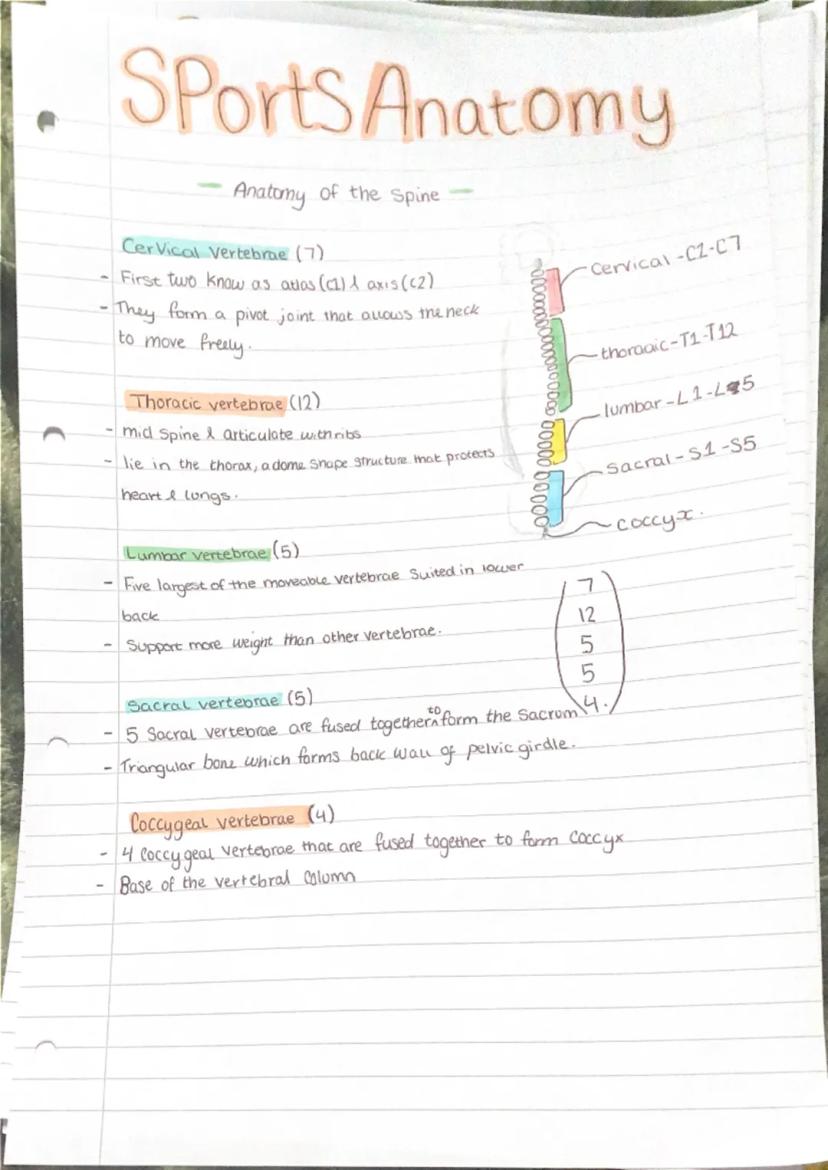 SPortS Anatomy
- Anatomy of the Spine -
Cervical Vertebrae (7)
- First two know as atlas (C1) & axis (C2)
- They form a pivot joint that allows the neck
to move freely.
Thoracic vertebrae (12)
- mid spine & articulate with ribs
- lie in the thorax, a dome shape structure that protects
heart & lungs.
Lumbar vertebrae (5)
- Five largest of the moveable vertebrae Suited in lower
back
- Support more weight than other vertebrae.
Sacral vertebrae (5)
- 5 Sacral vertebrae are fused together to form the Sacrum
- Triangular bone which forms back wall of pelvic girdle.
Coccygeal vertebrae (4)
- 4 Coccygeal vertebrae that are fused together to form Coccyx
- Base of the vertebral Column
Cervical - C1-C7
thoracic - T1-T12
lumbar - L1-L5
Sacral - S1-S5
coccyx.
7
12
5
5
4.